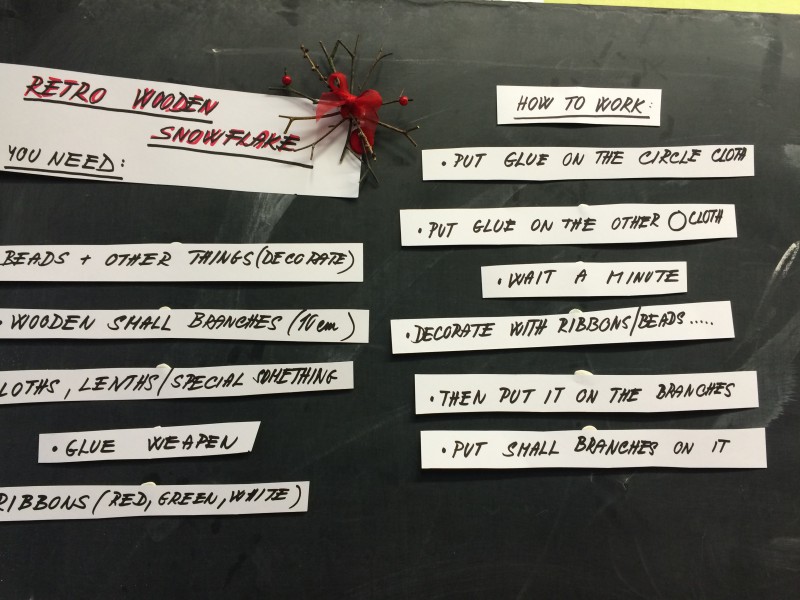 RETRO WOODEN
SNOWFLAKE
YOU NEED:
BEADS + OTHER THINGS (DECORATE)
• WOODEN SMALL BRANCHES (10 cm)
LOTHS, LENTHS/SPECIAL SOMETHING
• GLUE WEAPEN
RIBBONS (RED, GREEN, WHITE)
HOW TO WORK:
• PUT GLUE ON THE CIRCLE CLOTH
• PUT GLUE ON THE OTHER O CLOTH
• WAIT A MINUTE
• DECORATE WITH RIBBONS/BEADS.....
• THEN PUT IT ON THE BRANCHES
• PUT SMALL BRANCHES ON IT